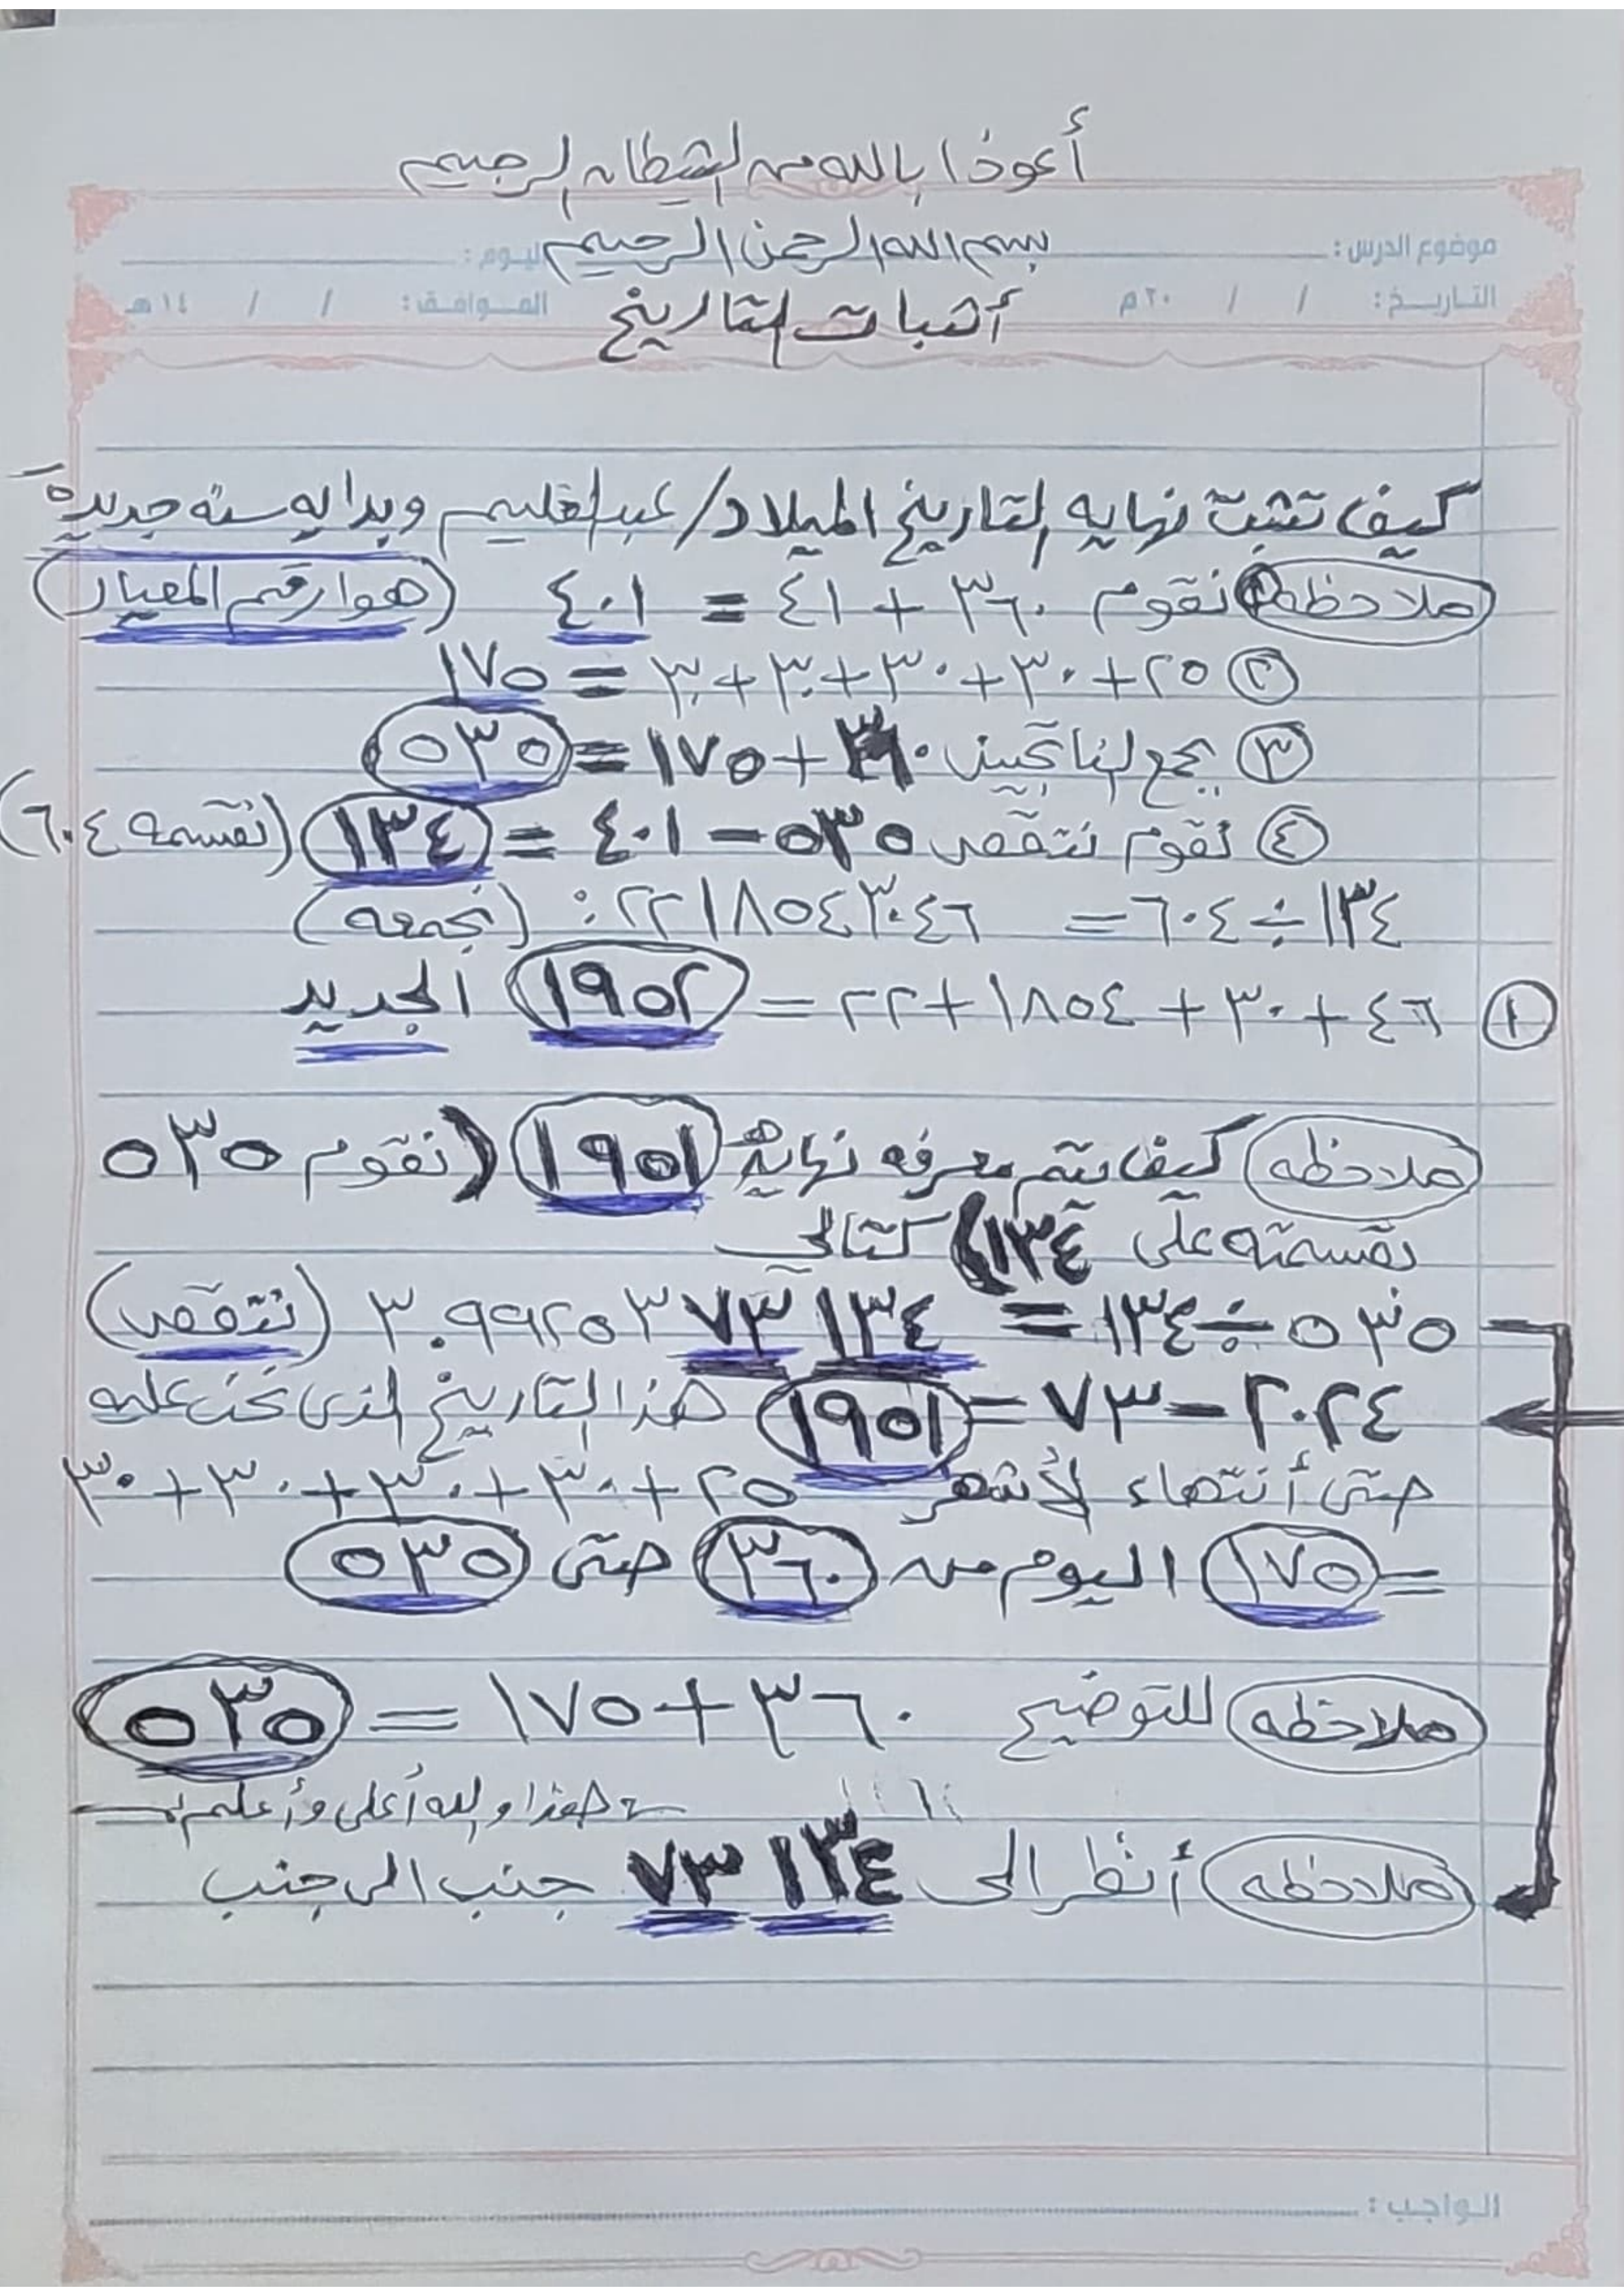 أعوذا بالله من الشيطان الرجيم
بسم الله الرحمن الرحيم
موضوع الدرس : اليوم :
التاريخ : / / ٢٠م الموافق : / / ١٤هـ
أثبات التاريخ
كيف تثبت نهايه التاريخ الميلاد/عبدالعليم وبدايه سنه جديدة
ملاحظه ① نقوم ٣٦٠ + ٤١ = ٤٠١ (هوا رقم المعيار)
② ٢٥+٣٠+٣٠+٣٠+٣٠ = ١٧٥
③ يجمع لناتجين ٣٦٠+١٧٥= ٥٣٥
④ نقوم نتقص ٥٣٥ - ٤٠١ = ١٣٤ (نقسمه ٦٠٤)
١٣٤÷٦٠٤= ٢٢١٨٥٤٣٠٤٦: (نجمعه)
① ٤٦+٣٠+١٨٥٤+٢٢= ١٩٥٢ الجديد
ملاحظه كيف يتم معرفه نهايه ١٩٥١ (نقوم ٥٣٥
نقسمته على ١٣٤) كتالي
٥٣٥÷١٣٤ = ٣.٩٩٢٥٣٧٣١٣٤ (نتقص)
٢٠٢٤-٧٣=١٩٥١ هذا التاريخ الذي نحن عليه
حتى أنتهاء لأشهر ٢٥+٣٠+٣٠+٣٠+٣٠
=١٧٥ اليوم من ٣٦٠ حتى ٥٣٥
ملاحظه للتوضيح ٣٦٠+١٧٥ = ٥٣٥
هذا والله أعلى وأعلم
ملاحظه أنظر الى ١٣٤ ٧٣ جنب الى جنب
الواجب :